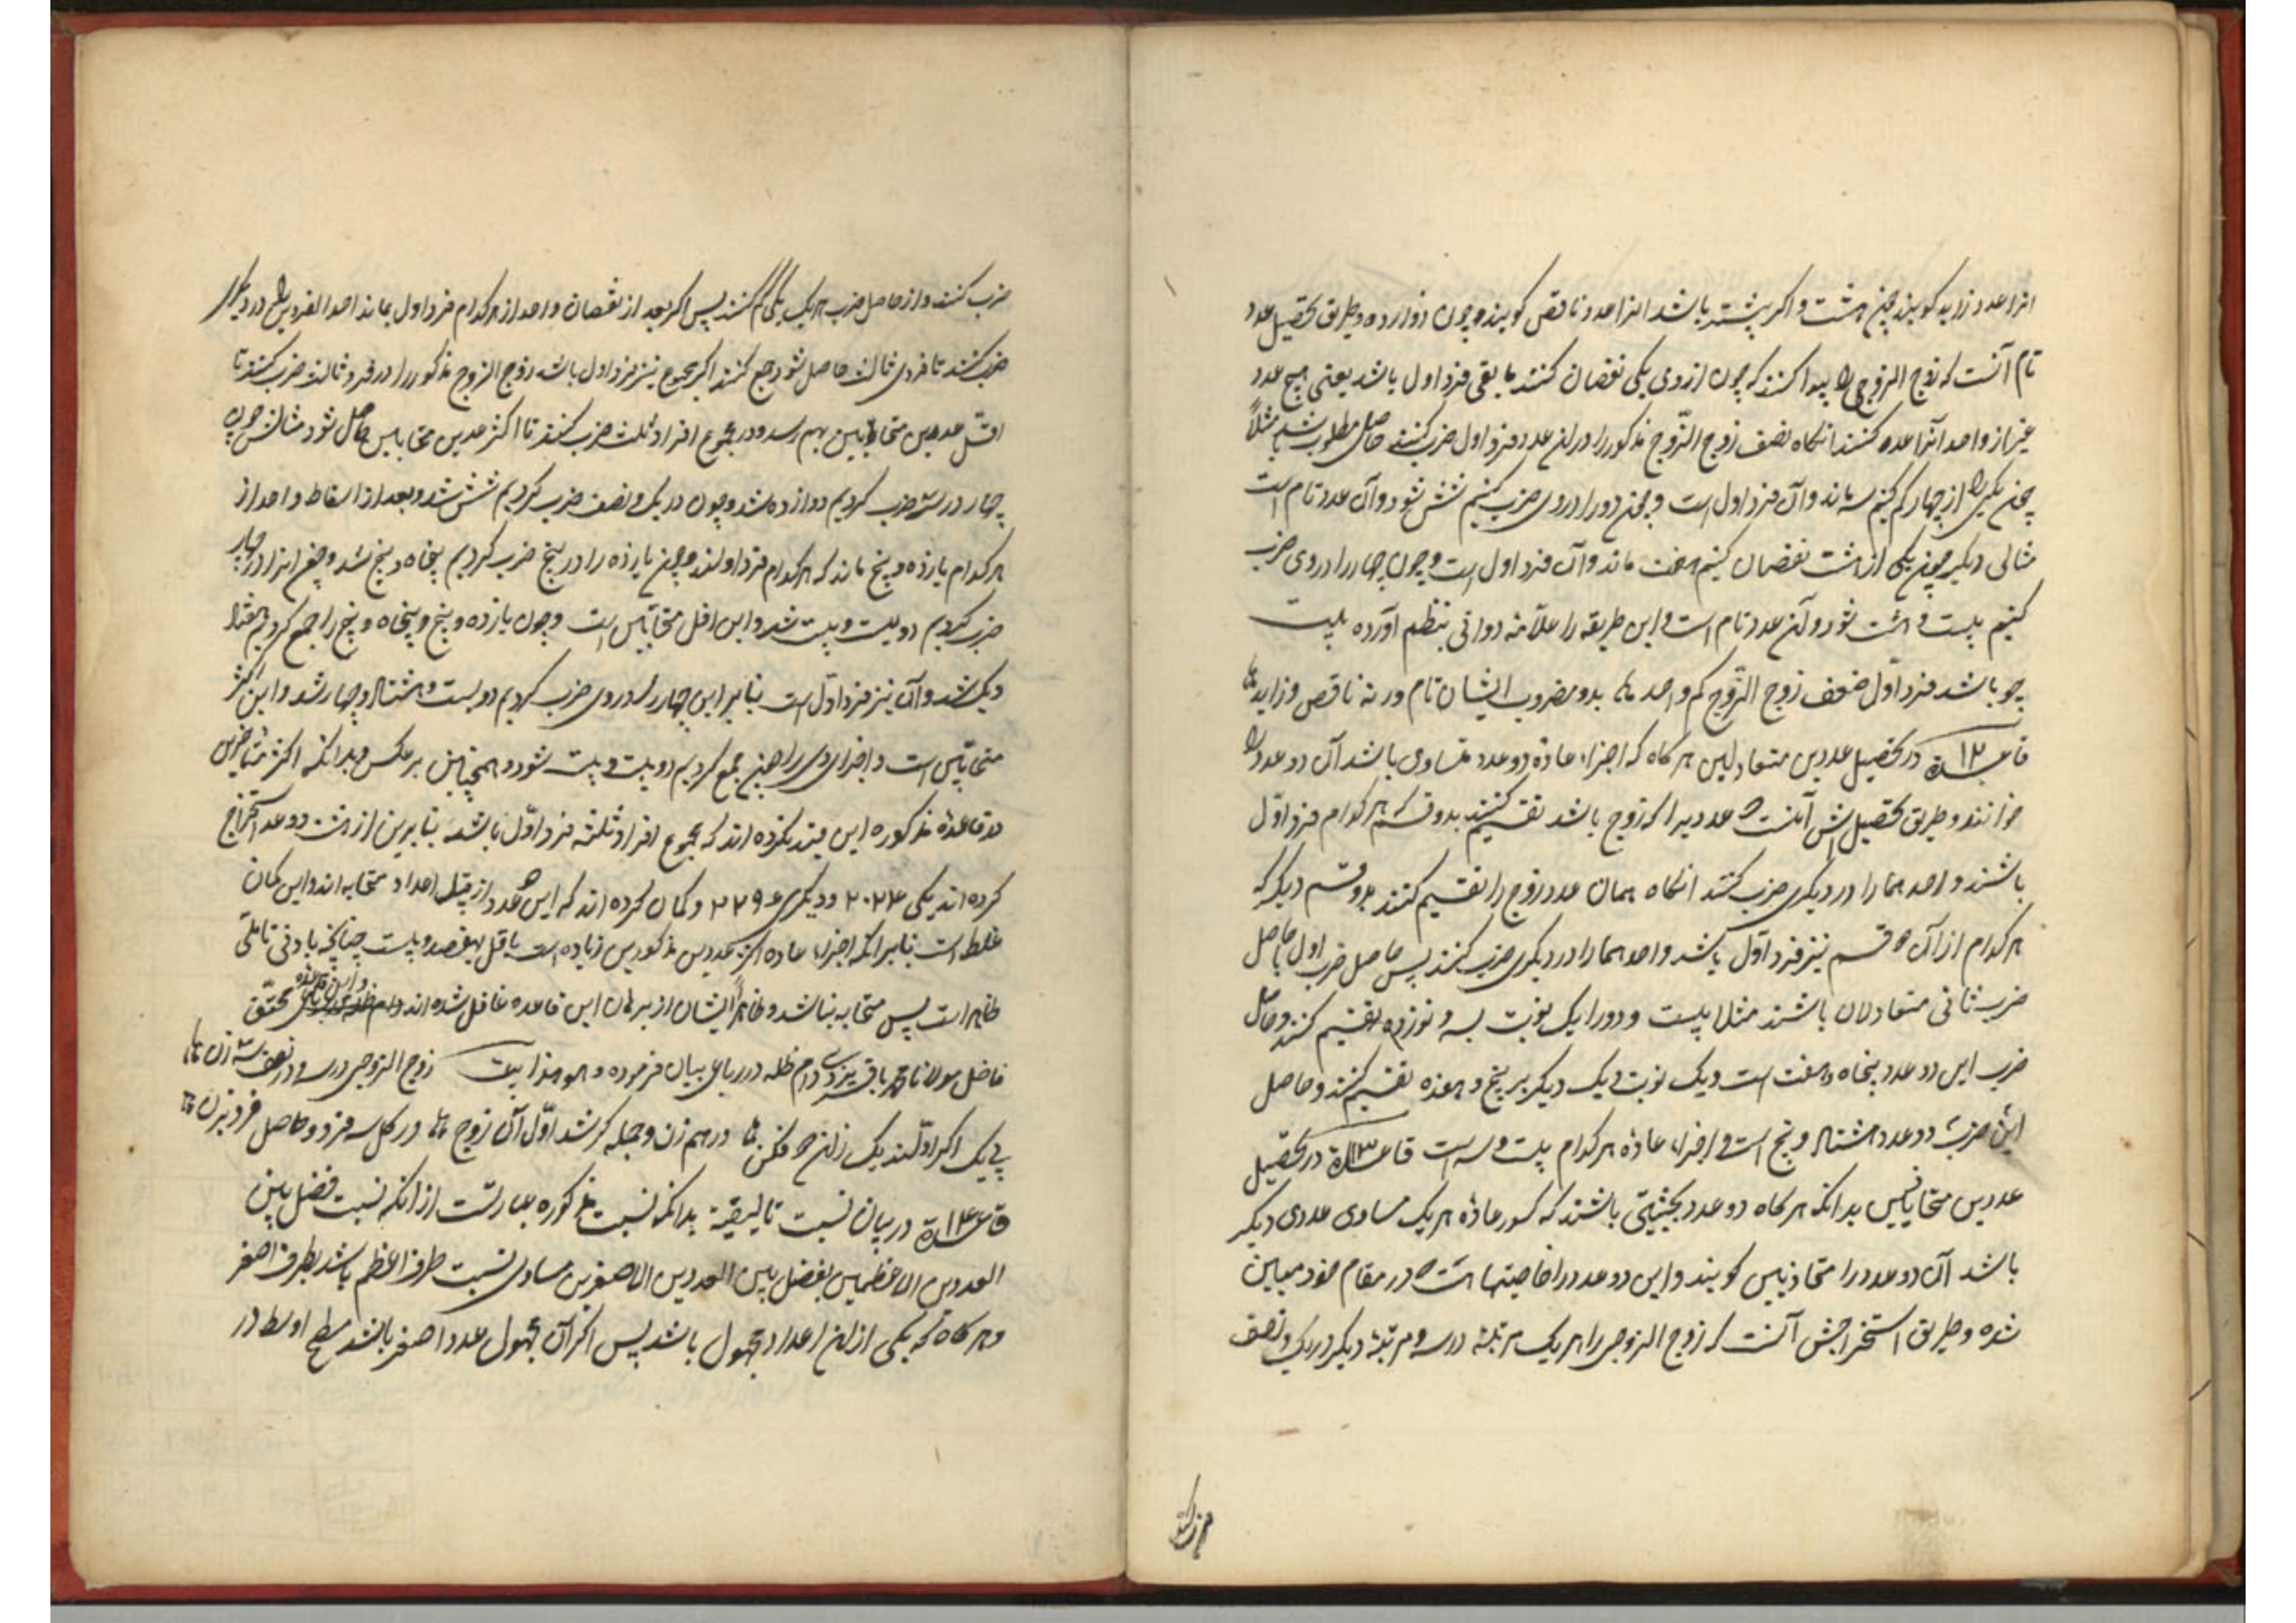 انرا عدد زاید کویند چون هشت و اکر بیشتر باشد انرا عدد ناقص کویند و چون دوازده و طریق تحصیل عدد
تام آنست که زوج الزوجی را پیدا کنند که چون از وی یکی نقصان کنند ما بقی فرد اول باشد یعنی هیچ عدد
غیر از واحد آنرا عده کنند انکاه نصف زوج الزّوج مذکور را در ان عدد فرد اول ضرب کنند حاصل مطلوب باشد مثلاً
چون یکی را از چهار کم کنیم سه ماند و آن فرد اول است و چون دو را در وی ضرب کنیم شش شود و آن عدد تام است
مثالی دیکر چون یکی از هشت نقصان کنیم هفت ماند و آن فرد اول است و چون چهار را در وی ضرب
کنیم بیست و هشت شود و آن عدد تام است و این طریقه را علاّمه دوانی بنظم آورده بیت
چو باشد فرد اوّل ضعف زوج الزّوج کم واحد بدو مضروب ایشان تام ور نه ناقص و زاید
قاعدة ١٢ در تحصیل عددین متعادلین هر کاه که اجزاء عادّه دو عدد متساوی باشد آن دو عدد را
خوانند و طریق تحصیلش آنست که عددیرا که زوج باشد تقسیم کنند بدو قسم که هر کدام فرد اوّل
باشند و احدهما را در دیکری ضرب کنند انکاه همان عدد زوج را تقسیم کنند بدو قسم دیکر که
هر کدام از آن دو قسم نیز فرد اوّل باشد و احدهما را در دیکری ضرب کنند پس حاصل ضرب اول با حاصل
ضرب ثانی متعادلان باشند مثلا بیست و دو را یک نوبت بسه و نوزده تقسیم کنند و حاصل
ضرب این دو عدد پنجاه و هفت است و یک نوبت دیکر بر پنج و هفده تقسیم کنند و حاصل
این ضرب دو عدد هشتاد و پنج است و اجزاء عادّه هر کدام بیست و سه است قاعدة ١٣ در تحصیل
عددین متحابّین بدانکه هر کاه دو عدد بحیثیتی باشند که کسور عادّه هر یک مساوی عددی دیکر
باشد آن دو عدد را متحابّین کویند و این دو عدد را خاصیتها است که در مقام خود مبین
شده و طریق استخراجش آنست که زوج الزوجی را هر یک مرتبه در سه و مرتبه دیکر در یک و نصف
ضرب کنند
ضرب کنند و از حاصل ضرب هر یک یکی کم کنند پس اکر بعد از نقصان واحد از هر کدام فرد اول بماند احد الفردین را در دیکر
ضرب کنند تا فردی ثالث حاصل شود جمع کنند اکر مجموع نیز فرد اول باشد زوج الزوج مذکور را در فرد ثالث ضرب کنند تا
اقل عددین متحابّین بهم رسد و در مجموع افراد ثلث ضرب کنند تا اکثر عددین متحابین حاصل شود مثالش چون
چهار در سه ضرب کردیم دوازده شد و چون در یک و نصف ضرب کردیم شش شد و بعد از اسقاط واحد از
هر کدام یازده و پنج ماند که هر کدام فرد اولند و چون یازده را در پنج ضرب کردیم پنجاه و پنج شد و چون انرا در چهار
ضرب کردیم دویست و بیست شد و این اقل متحابّین است و چون یازده و پنج و پنجاه و پنج را جمع کردیم هفتاد
و یک شد و آن نیز فرد اوّل است بنابر این چهار را در وی ضرب کردیم دویست و هشتاد و چهار شد و این اکثر
متحابّین است و اجزای وی را چون جمع کردیم دویست و بیست شود و همچنین بر عکس و بدانکه اکثر متأخرین
در قاعدهٔ مذکوره این قید نکرده اند که مجموع افراد ثلثه فرد اوّل باشد بنابرین از هشت دو عدد استخراج
کرده اند یکی ٢٠٢٤ و دیکری ٢٢٩٦ و کمان کرده اند که این دو عدد از قبیل اعداد متحابه اند و این کمان
غلط است بنابر انکه اجزاء عاده اکثر عددین مذکورین زیاده است باقل بهفصد و بیست چنانچه بادنی تأملی
ظاهر است پس متحابه نباشد و ظاهراً ایشان از برهان این قاعده غافل شده اند و این قاعده محقق
فاضل مولانا محمد باقر یزدی دام ظله در رباعی بیان فرموده و هو هذا بیت زوج الزوجی در سه و در نصف سه زن
پی یک اکر اوّلند یک زان دو فکن در هم زن و جمله کر شد اوّل آن زوج در کل سه فرد و حاصل فرد بزن
قاعدة ١٤ در بیان نسبت تالیفیّة بدانکه نسبت مذکوره عبارتست از انکه نسبت فضل بین
العددین الاعظمین بفضل بین العددین الاصغرین مساوی نسبت طرف اعظم باشد بطرف اصغر
و هر کاه که یکی از این اعداد مجهول باشد پس اکر آن مجهول عدد اصغر باشد مسطح اوسط در